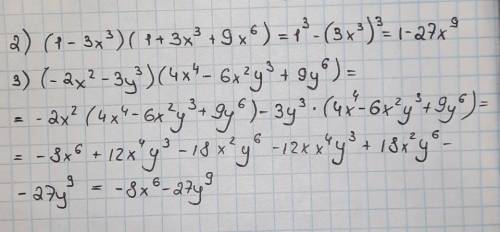 2) (1-3x³)(1+3x³+9x⁶)=1³-(3x³)³=1-27x⁹
3) (-2x²-3y³)(4x⁴-6x²y³+9y⁶)=
= -2x²(4x⁴-6x²y³+9y⁶)-3y³·(4x⁴-6x²y³+9y⁶)=
= -8x⁶+12x⁴y³-18x²y⁶-12xx⁴y³+18x²y⁶-
-27y⁹ = -8x⁶-27y⁹